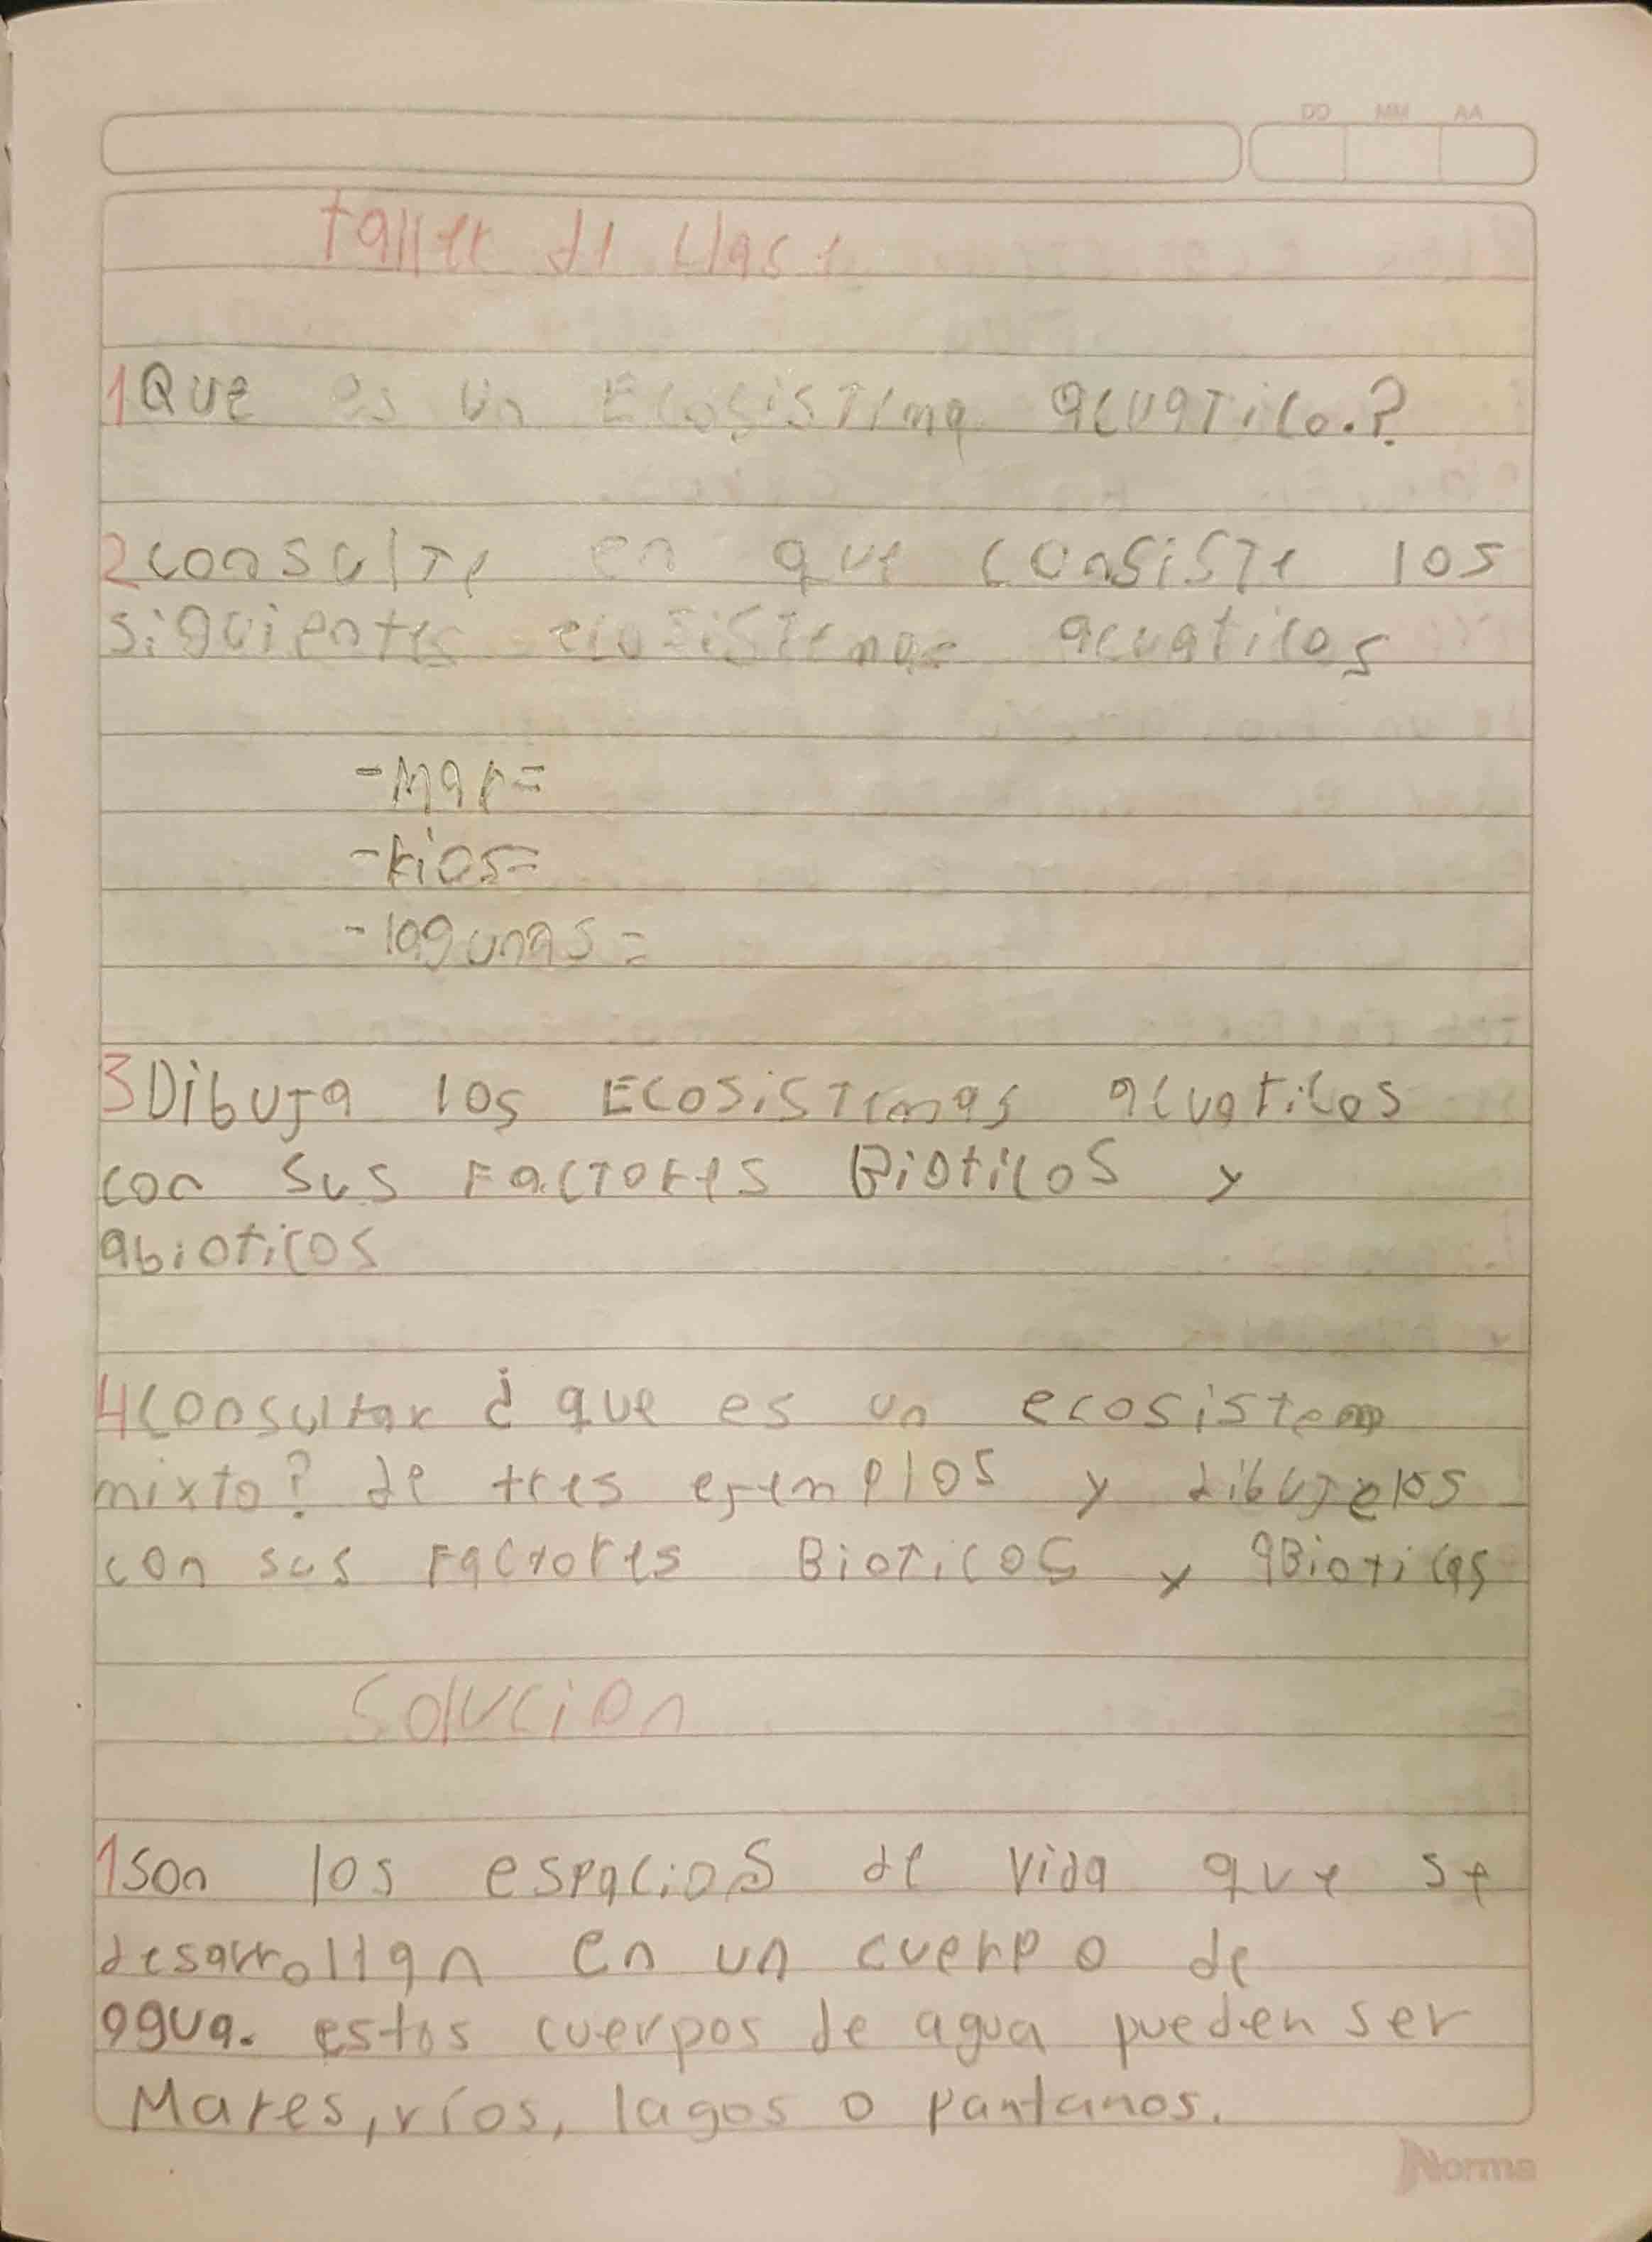 DD MM AA
taller de clase
1 Que es un Ecosistema acuatico.?
2 consulte en que consiste los
siguientes ecosistemas acuaticos
- Mar =
- Rios =
- lagunas =
3 Dibuja los Ecosistemas acuaticos
con sus Factores Bioticos y
abioticos
4 Consultar ¿ que es un ecosistem
mixto? de tres ejemplos y dibujelos
con sus Factores Bioticos y aBioticas
Solucion
1 Son los espacios de vida que se
desarrollan en un cuerpo de
agua. estos cuerpos de agua pueden ser
Mares, ríos, lagos o pantanos.
Norma